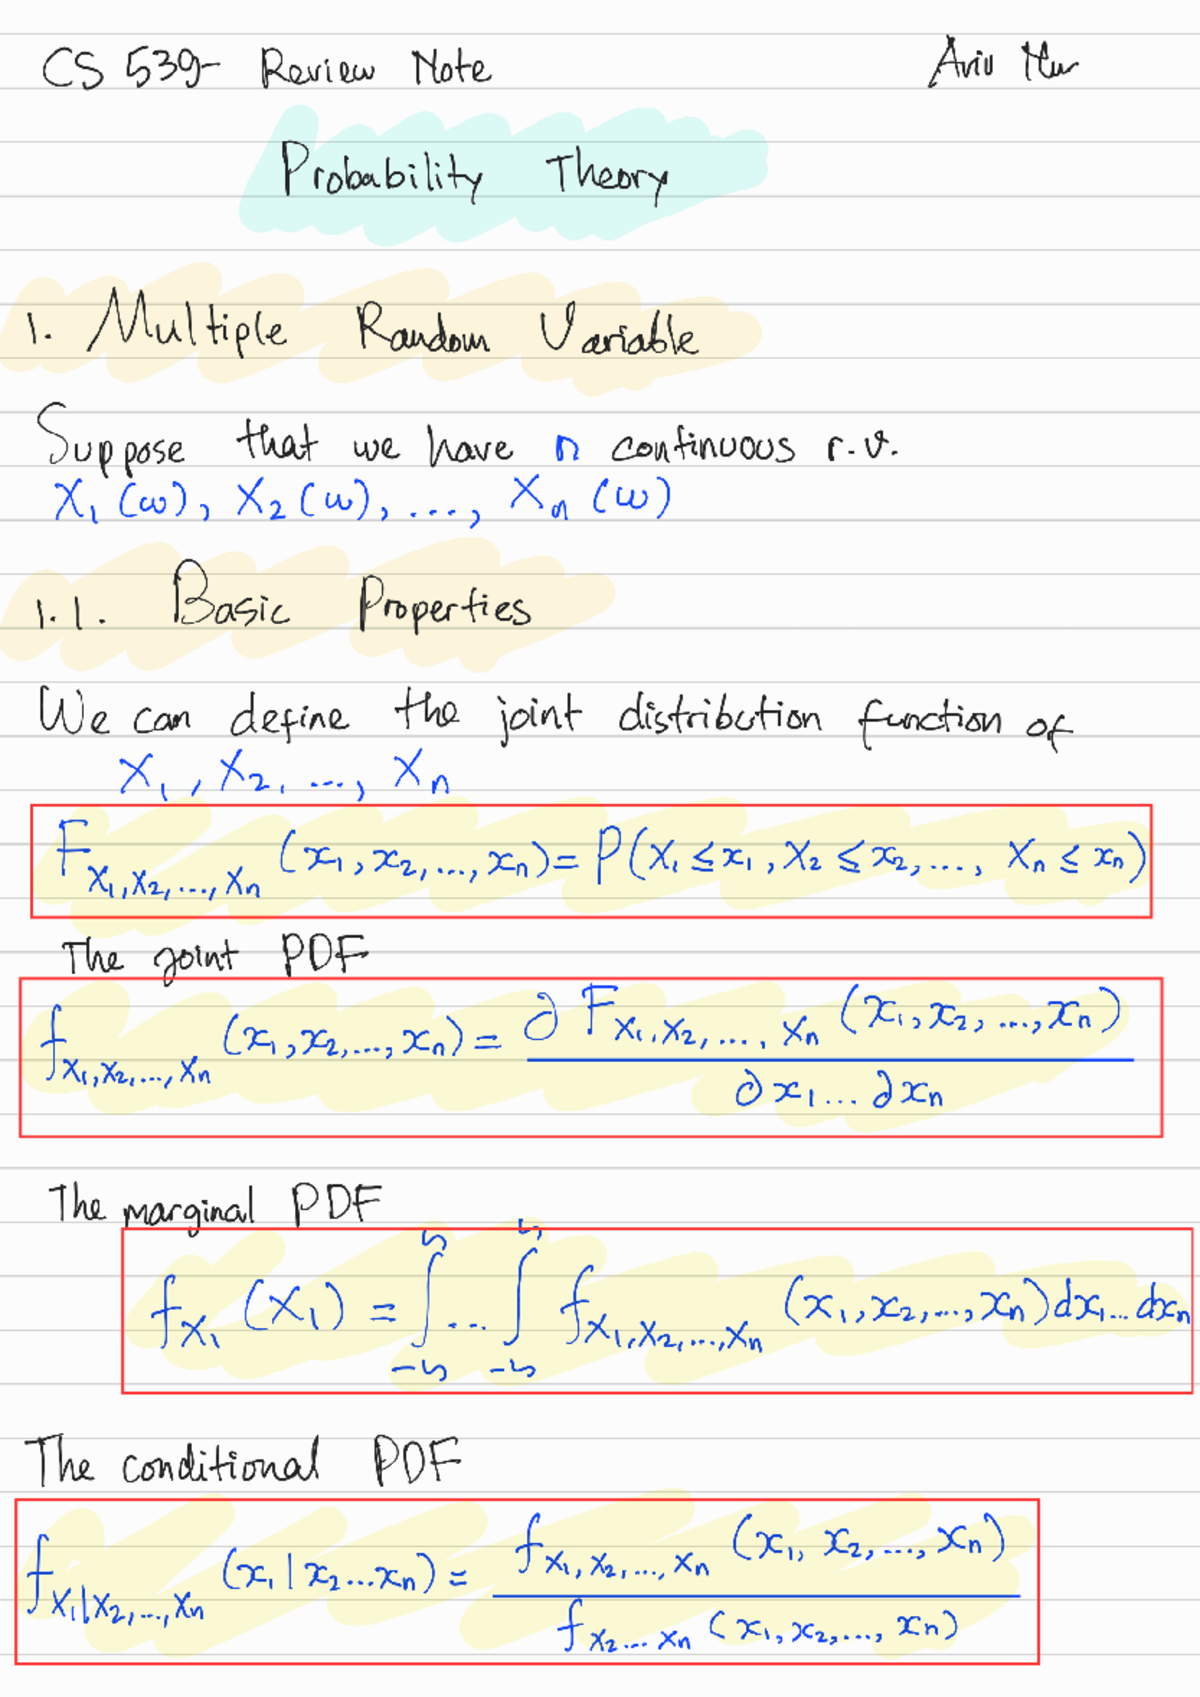 CS 539- Review Note
Aviv
Probability Theory
1. Multiple Random Variable
Suppose that we have n continuous r.v.
X₁(ω), X₂(ω), ..., Xₙ(ω)
1.1. Basic Properties
We can define the joint distribution function of
X₁, X₂, ..., Xₙ
F_{X₁,X₂,...,Xₙ} (x₁,x₂,...,xₙ) = P(X₁≤x₁, X₂≤x₂,..., Xₙ≤xₙ)
The joint PDF
f_{X₁,X₂,...,Xₙ} (x₁,x₂,...,xₙ) = ∂F_{X₁,X₂,...,Xₙ} (x₁,x₂,...,xₙ) / ∂x₁...∂xₙ
The marginal PDF
f_{X₁} (X₁) = ∫...∫ f_{X₁,X₂,...,Xₙ} (x₁,x₂,...,xₙ)dx₁...dxₙ
The conditional PDF
f_{X₁|X₂,...,Xₙ} (x₁|x₂...xₙ) = f_{X₁,X₂,...,Xₙ} (x₁, x₂,..., xₙ) / f_{X₂...Xₙ} (x₁,x₂,..., xₙ)